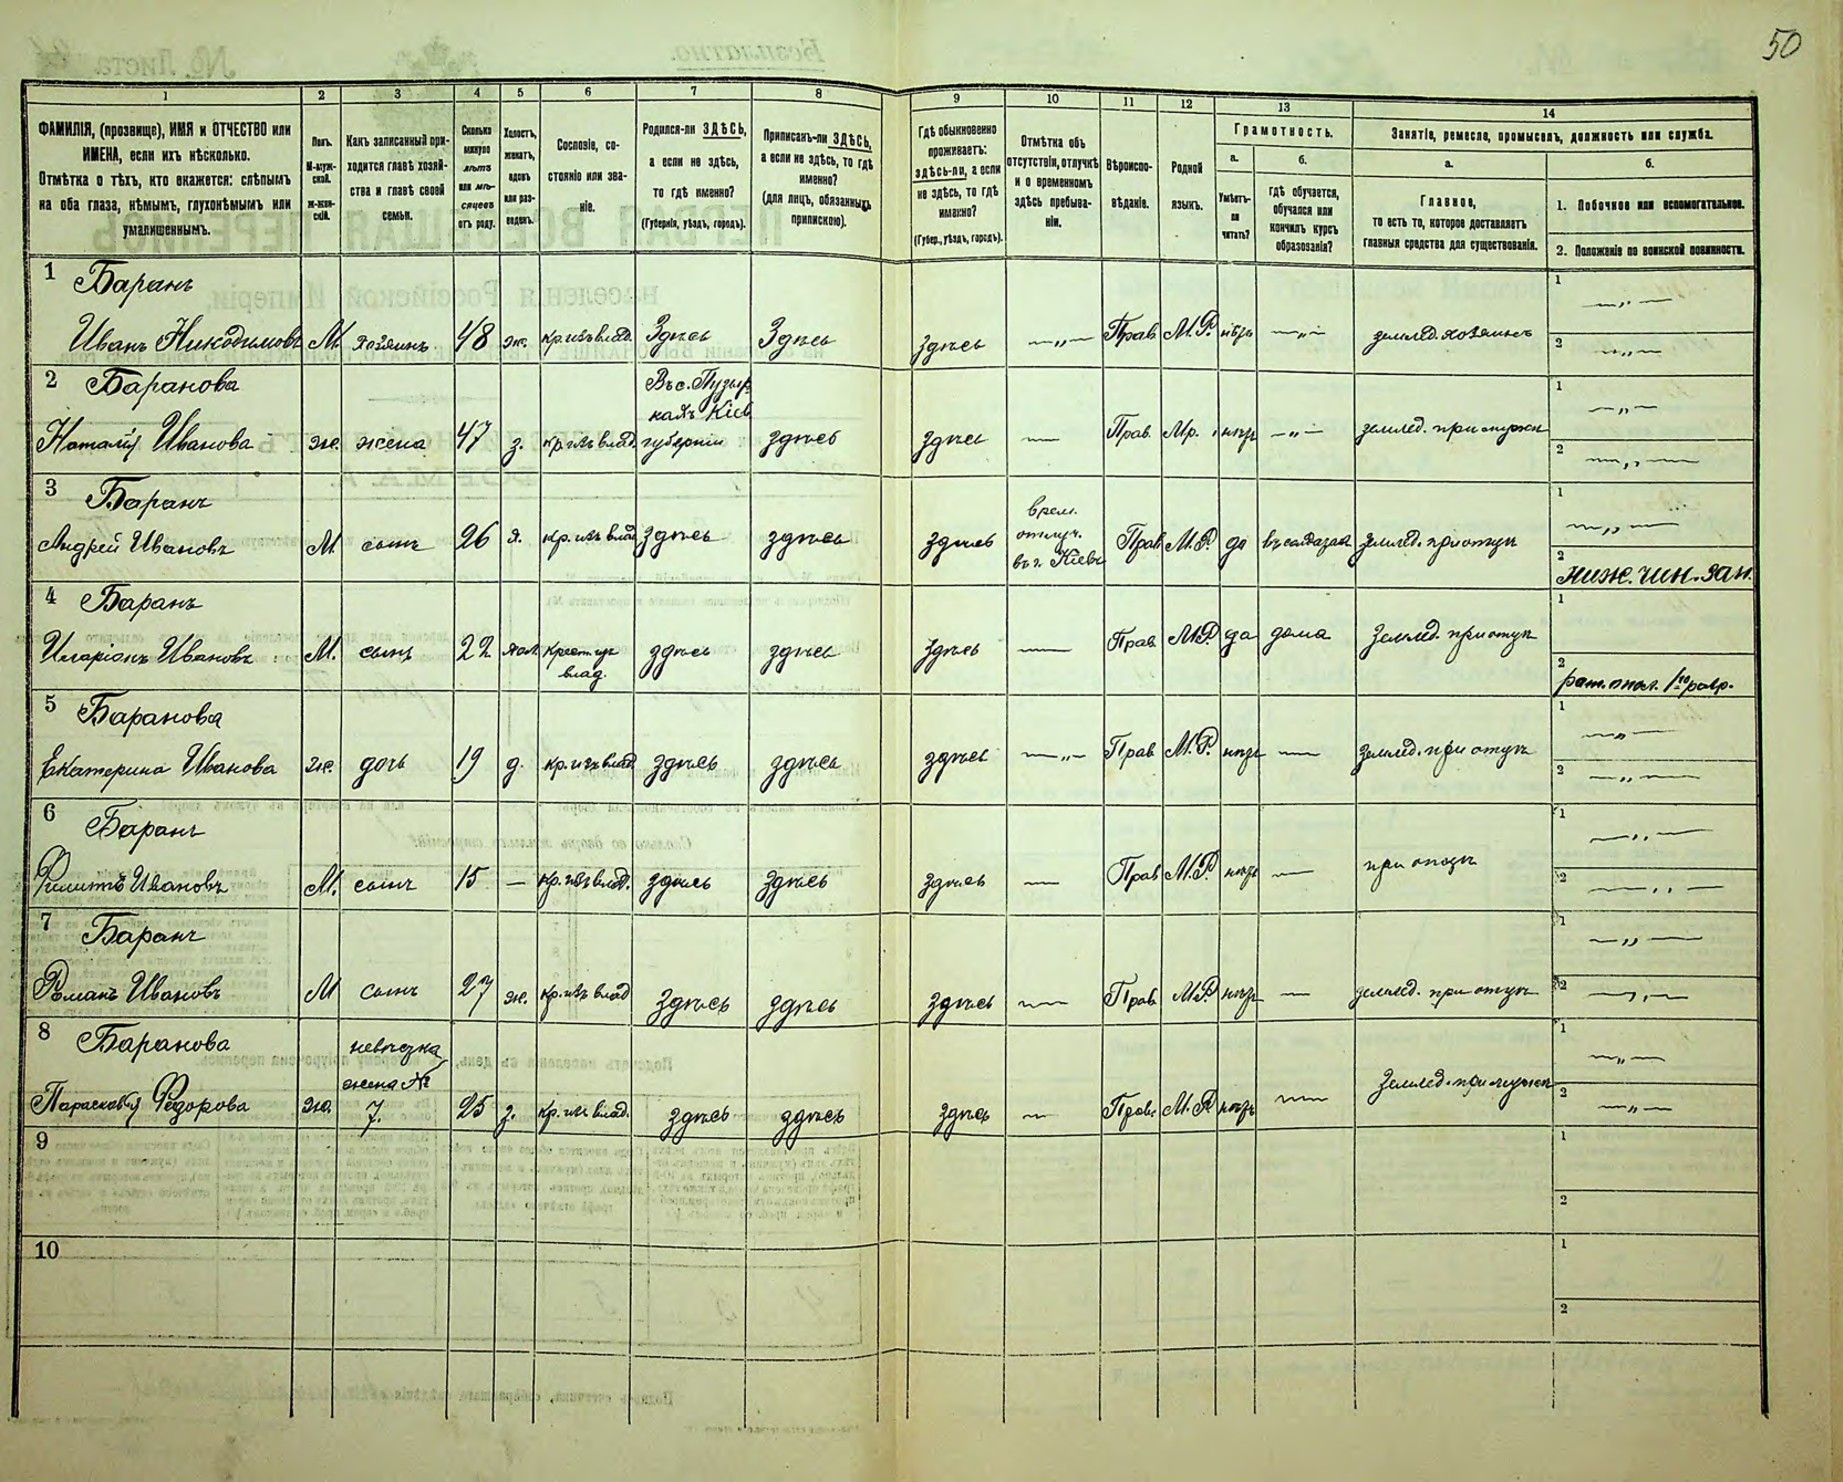 50
1 2 3 4 5 6 7 8 9 10 11 12 13 14
ФАМИЛІЯ, (прозвище), ИМЯ и ОТЧЕСТВО или
ИМЕНА, если ихъ нѣсколько.
Отмѣтка о тѣхъ, кто окажется: слѣпымъ
на оба глаза, нѣмымъ, глухонѣмымъ или
умалишеннымъ.
Полъ.
М-муж-
ской.
Ж-жен-
скій.
Какъ записанный при-
ходится главѣ хозяй-
ства и главѣ своей
семьи.
Сколько
минуло
лѣтъ
или мѣ-
сяцевъ
отъ роду.
Холостъ,
женатъ,
вдовъ
или раз-
веденъ.
Сословіе, со-
стояніе или зва-
ніе.
Родился-ли ЗДѢСЬ,
а если не здѣсь,
то гдѣ именно?
(Губернія, уѣздъ, городъ).
Приписанъ-ли ЗДѢСЬ,
а если не здѣсь, то гдѣ
именно?
(для лицъ, обязанныхъ
припискою).
Гдѣ обыкновенно
проживаетъ:
здѣсь-ли, а если
не здѣсь, то гдѣ
именно?
(Губер., уѣздъ, городъ).
Отмѣтка объ
отсутствіи, отлучкѣ
и о временномъ
здѣсь пребыва-
ніи.
Вѣроиспо-
вѣданіе.
Родной
языкъ.
Грамотность.
а.
Умѣетъ-
ли
читать?
б.
гдѣ обучается,
обучался или
кончилъ курсъ
образованія?
Занятіе, ремесло, промыселъ, должность или служба.
а.
Главное,
то есть то, которое доставляетъ
главныя средства для существованія.
б.
1. Побочное или вспомогательное.
2. Положеніе по воинской повинности.
1 Баранъ
Иванъ Никодимовъ М. хозяинъ 48 ж. кр. изъ влад. Здѣсь Здѣсь здѣсь —„— Прав. М.Р. нѣтъ —„— землед. хозяинъ
1 —„—
2 —„—
2 Баранова
Наталія Иванова ж. жена 47 з. кр. изъ влад.
Въ с. Пузыр
кахъ Кіев
губерніи
здѣсь здѣсь — Прав. Мр. нѣтъ —„—
1 —„—
2 —„—
3 Баранъ
Андрей Ивановъ М. сынъ 26 кр. изъ влад здѣсь здѣсь здѣсь
врем.
отлуч.
въ г. Кіевъ
Прав М.Р. да
1 —„—
2 ниж. чин. зап.
4 Баранъ
Иларіонъ Ивановъ М. сынъ 22 хол.
Крест. изъ
влад.
здѣсь здѣсь здѣсь — Прав. М.Р. да дома
1
2 рат. опол. 1го разр.
5 Баранова
Екатерина Иванова ж. дочь 19 д. кр. изъ влад. здѣсь здѣсь здѣсь —„— Прав. М.Р. нѣтъ —
1 —„—
2 —„—
6 Баранъ
Филиппъ Ивановъ М. сынъ 15 — кр. изъ влад. здѣсь здѣсь здѣсь — Прав. М.Р. нѣтъ —
1 —„—
2 —„—
7 Баранъ
Романъ Ивановъ М сынъ 27 ж. кр. изъ влад здѣсь здѣсь здѣсь — Прав. М.Р. нѣтъ —
1 —„—
2 —„—
8 Баранова
Параскевія Федорова ж.
невѣстка
жена №
7.
25 з. кр. изъ влад. здѣсь здѣсь здѣсь — Прав. М.Р. нѣтъ —
1 —„—
2 —„—
9
1
2
10
1
2